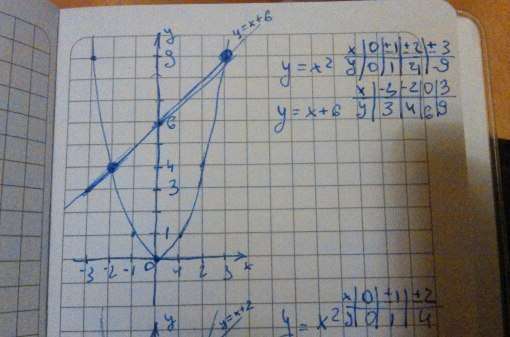 y
y=x+6
9
6
4
3
1
-3 -2 -1 0 1 2 3 x
y=x²
x 0 ±1 ±2 ±3
y 0 1 4 9
y=x+6
x -3 -2 0 3
y 3 4 6 9
y
y=x+2
y=x²
x 0 ±1 ±2
y 0 1 4